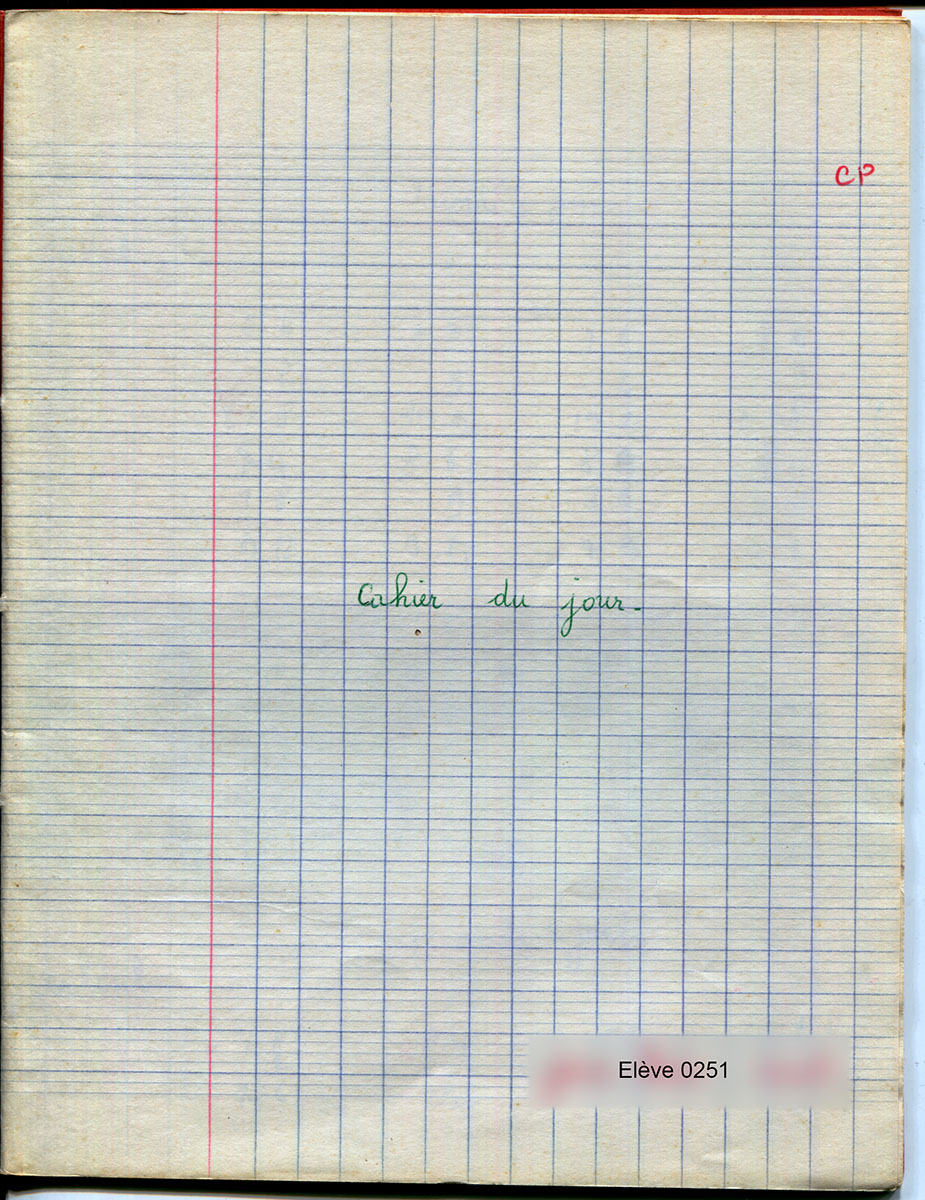 CP
Cahier du jour.
Elève 0251